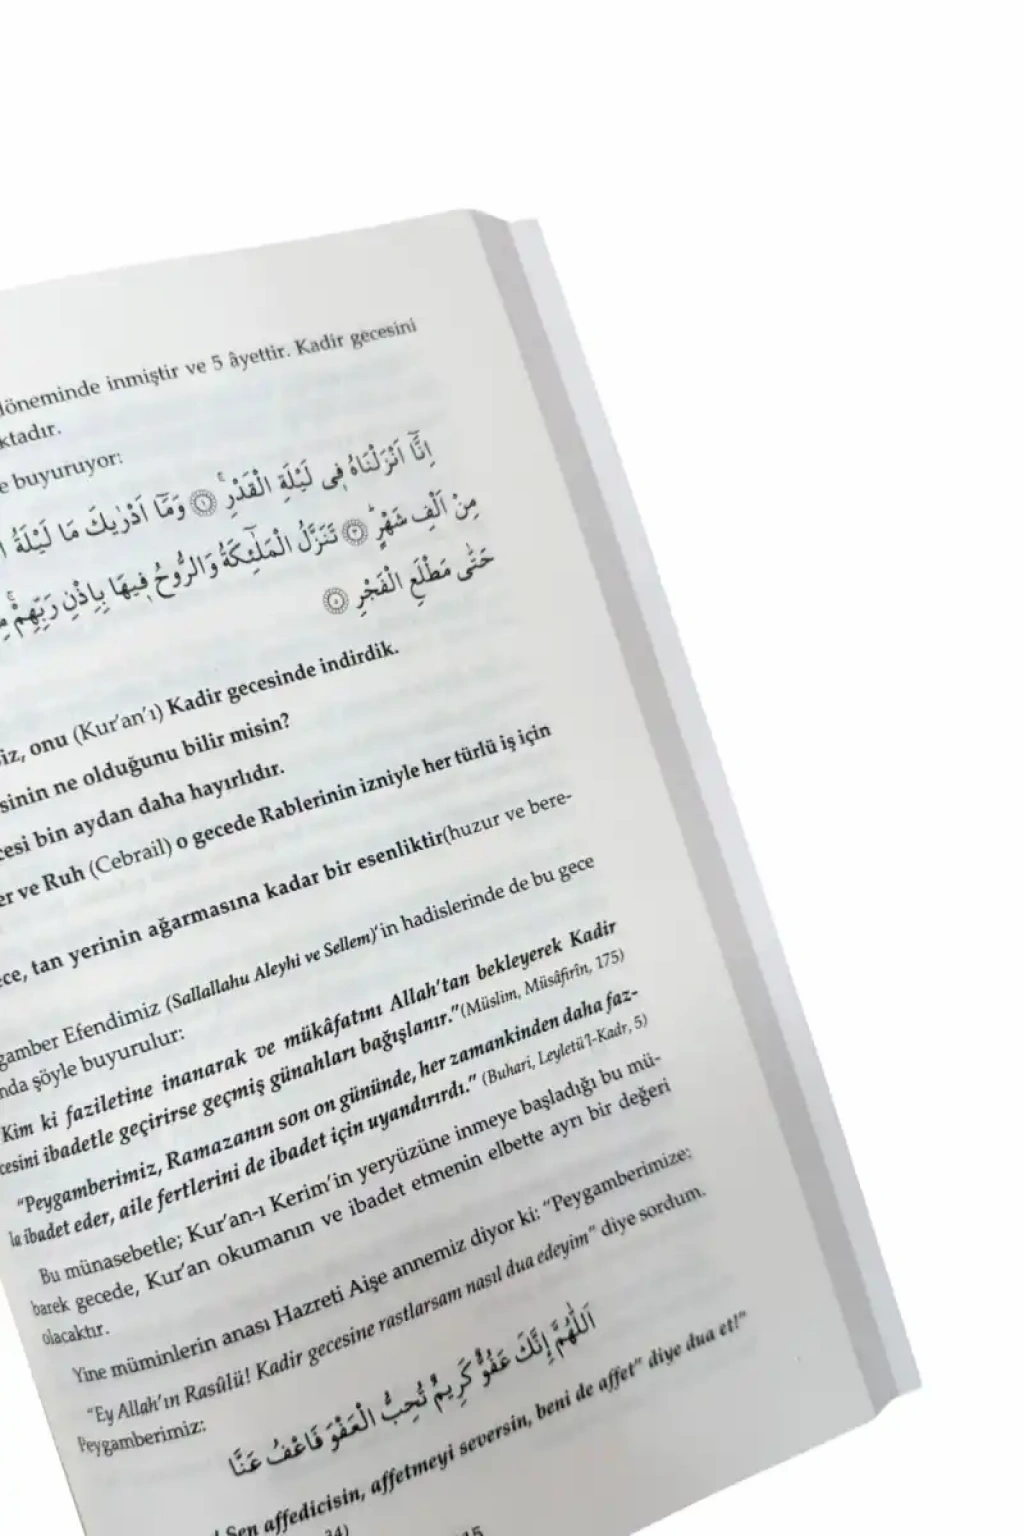 döneminde inmiştir ve 5 âyettir. Kadir gecesini
ktadır.
e buyuruyor:
اِنَّٓا اَنْزَلْنَاهُ ف۪ي لَيْلَةِ الْقَدْرِۚ ﴿١﴾ وَمَٓا اَدْرٰيكَ مَا لَيْلَةُ
مِنْ اَلْفِ شَهْرٍۜ ﴿٣﴾ تَنَزَّلُ الْمَلٰٓئِكَةُ وَالرُّوحُ ف۪يهَا بِاِذْنِ رَبِّهِمْۚ
حَتّٰى مَطْلَعِ الْفَجْرِ ﴿٥﴾
iz, onu (Kur'an'ı) Kadir gecesinde indirdik.
sinin ne olduğunu bilir misin?
cesi bin aydan daha hayırlıdır.
er ve Ruh (Cebrail) o gecede Rablerinin izniyle her türlü iş için
ece, tan yerinin ağarmasına kadar bir esenliktir(huzur ve bere-
gamber Efendimiz (Sallallahu Aleyhi ve Sellem)'in hadislerinde de bu gece
nda şöyle buyurulur:
Kim ki faziletine inanarak ve mükâfatını Allah'tan bekleyerek Kadir
cesini ibadetle geçirirse geçmiş günahları bağışlanır."(Müslim, Müsâfirîn, 175)
"Peygamberimiz, Ramazanın son on gününde, her zamankinden daha faz-
la ibadet eder, aile fertlerini de ibadet için uyandırırdı." (Buhari, Leyletü'l-Kadr, 5)
Bu münasebetle; Kur'an-ı Kerim'in yeryüzüne inmeye başladığı bu mü-
barek gecede, Kur'an okumanın ve ibadet etmenin elbette ayrı bir değeri
olacaktır.
Yine müminlerin anası Hazreti Aişe annemiz diyor ki: "Peygamberimize:
"Ey Allah'ın Rasûlü! Kadir gecesine rastlarsam nasıl dua edeyim" diye sordum.
Peygamberimiz:
اَللّٰهُمَّ اِنَّكَ عَفُوٌّ كَرِيمٌ تُحِبُّ الْعَفْوَ فَاعْفُ عَنَّا
! Sen affedicisin, affetmeyi seversin, beni de affet" diye dua et!"
34)